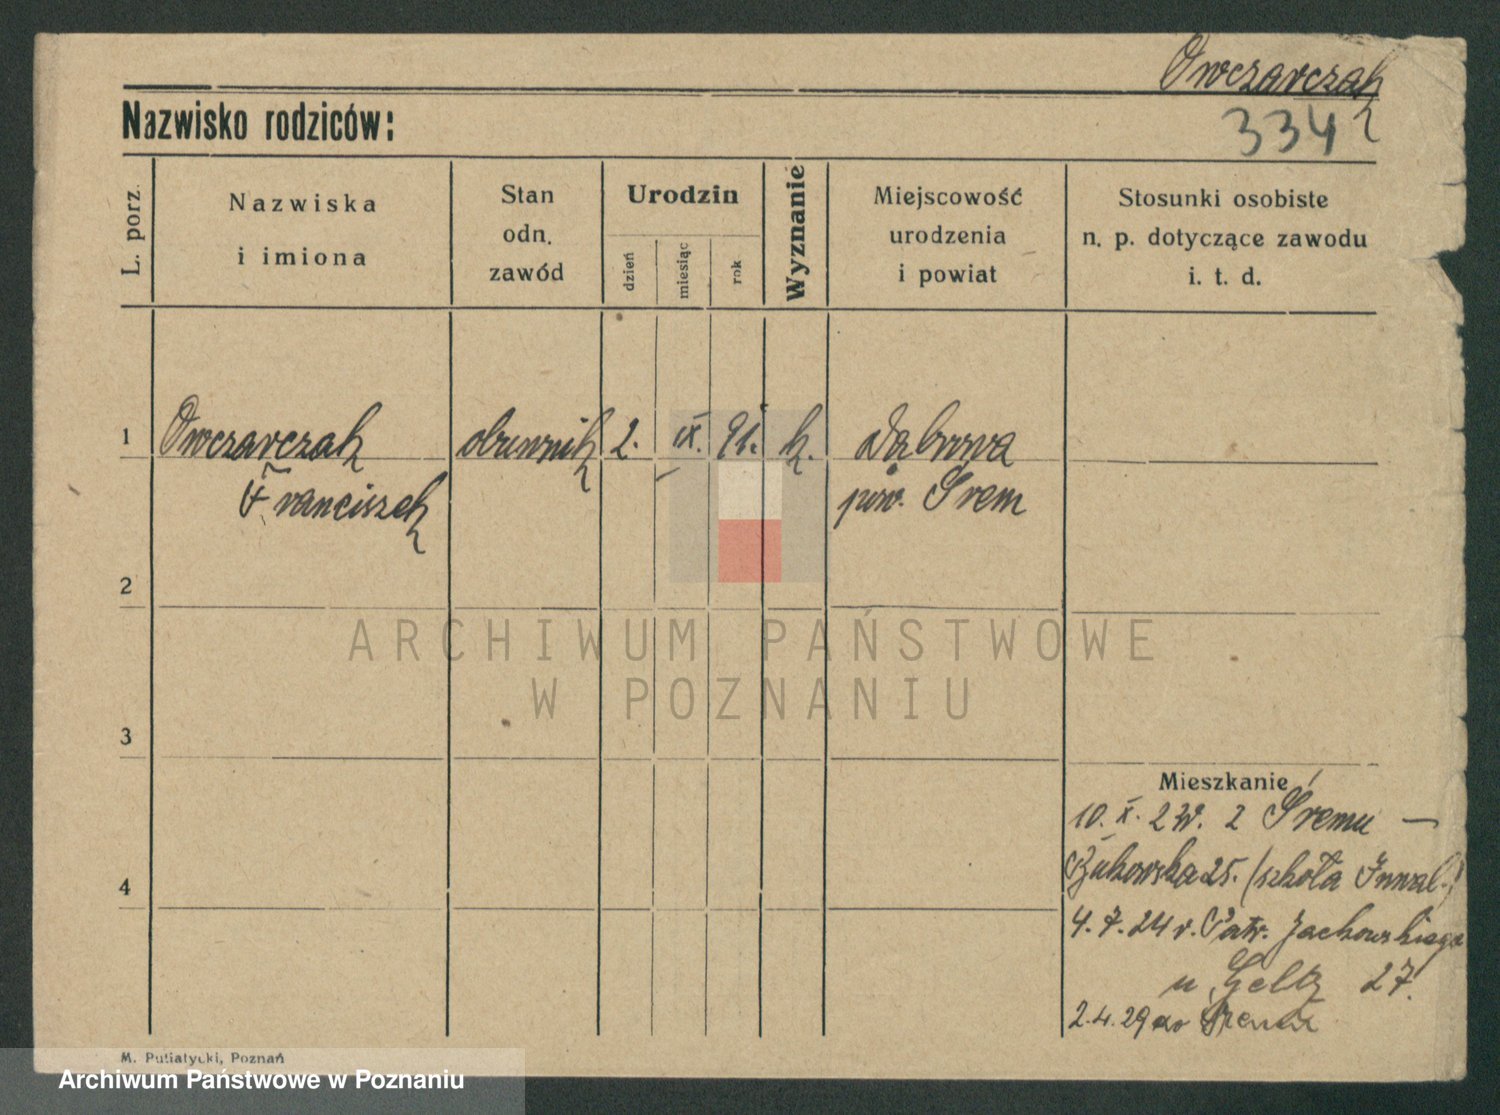 Owczarczak
334
Nazwisko rodziców:
L. porz.
Nazwiska
i imiona
Stan
odn.
zawód
Urodzin
dzień
miesiąc
rok
Wyznanie
Miejscowość
urodzenia
i powiat
Stosunki osobiste
n. p. dotyczące zawodu
i. t. d.
1 Owczarczak obuwnik 2. IX. 91. k. Dąbrowa
Franciszek pow. Śrem
2
ARCHIWUM PAŃSTWOWE
W POZNANIU
3
Mieszkanie
10. X. 23r. z Śremu —
Bukowska 25. (szkoła Inwal.)
4
4.7.24 r. Patr. Jackowskiego
u 27.
2.4.29 do Śremu
M. Putiatycki, Poznań
Archiwum Państwowe w Poznaniu